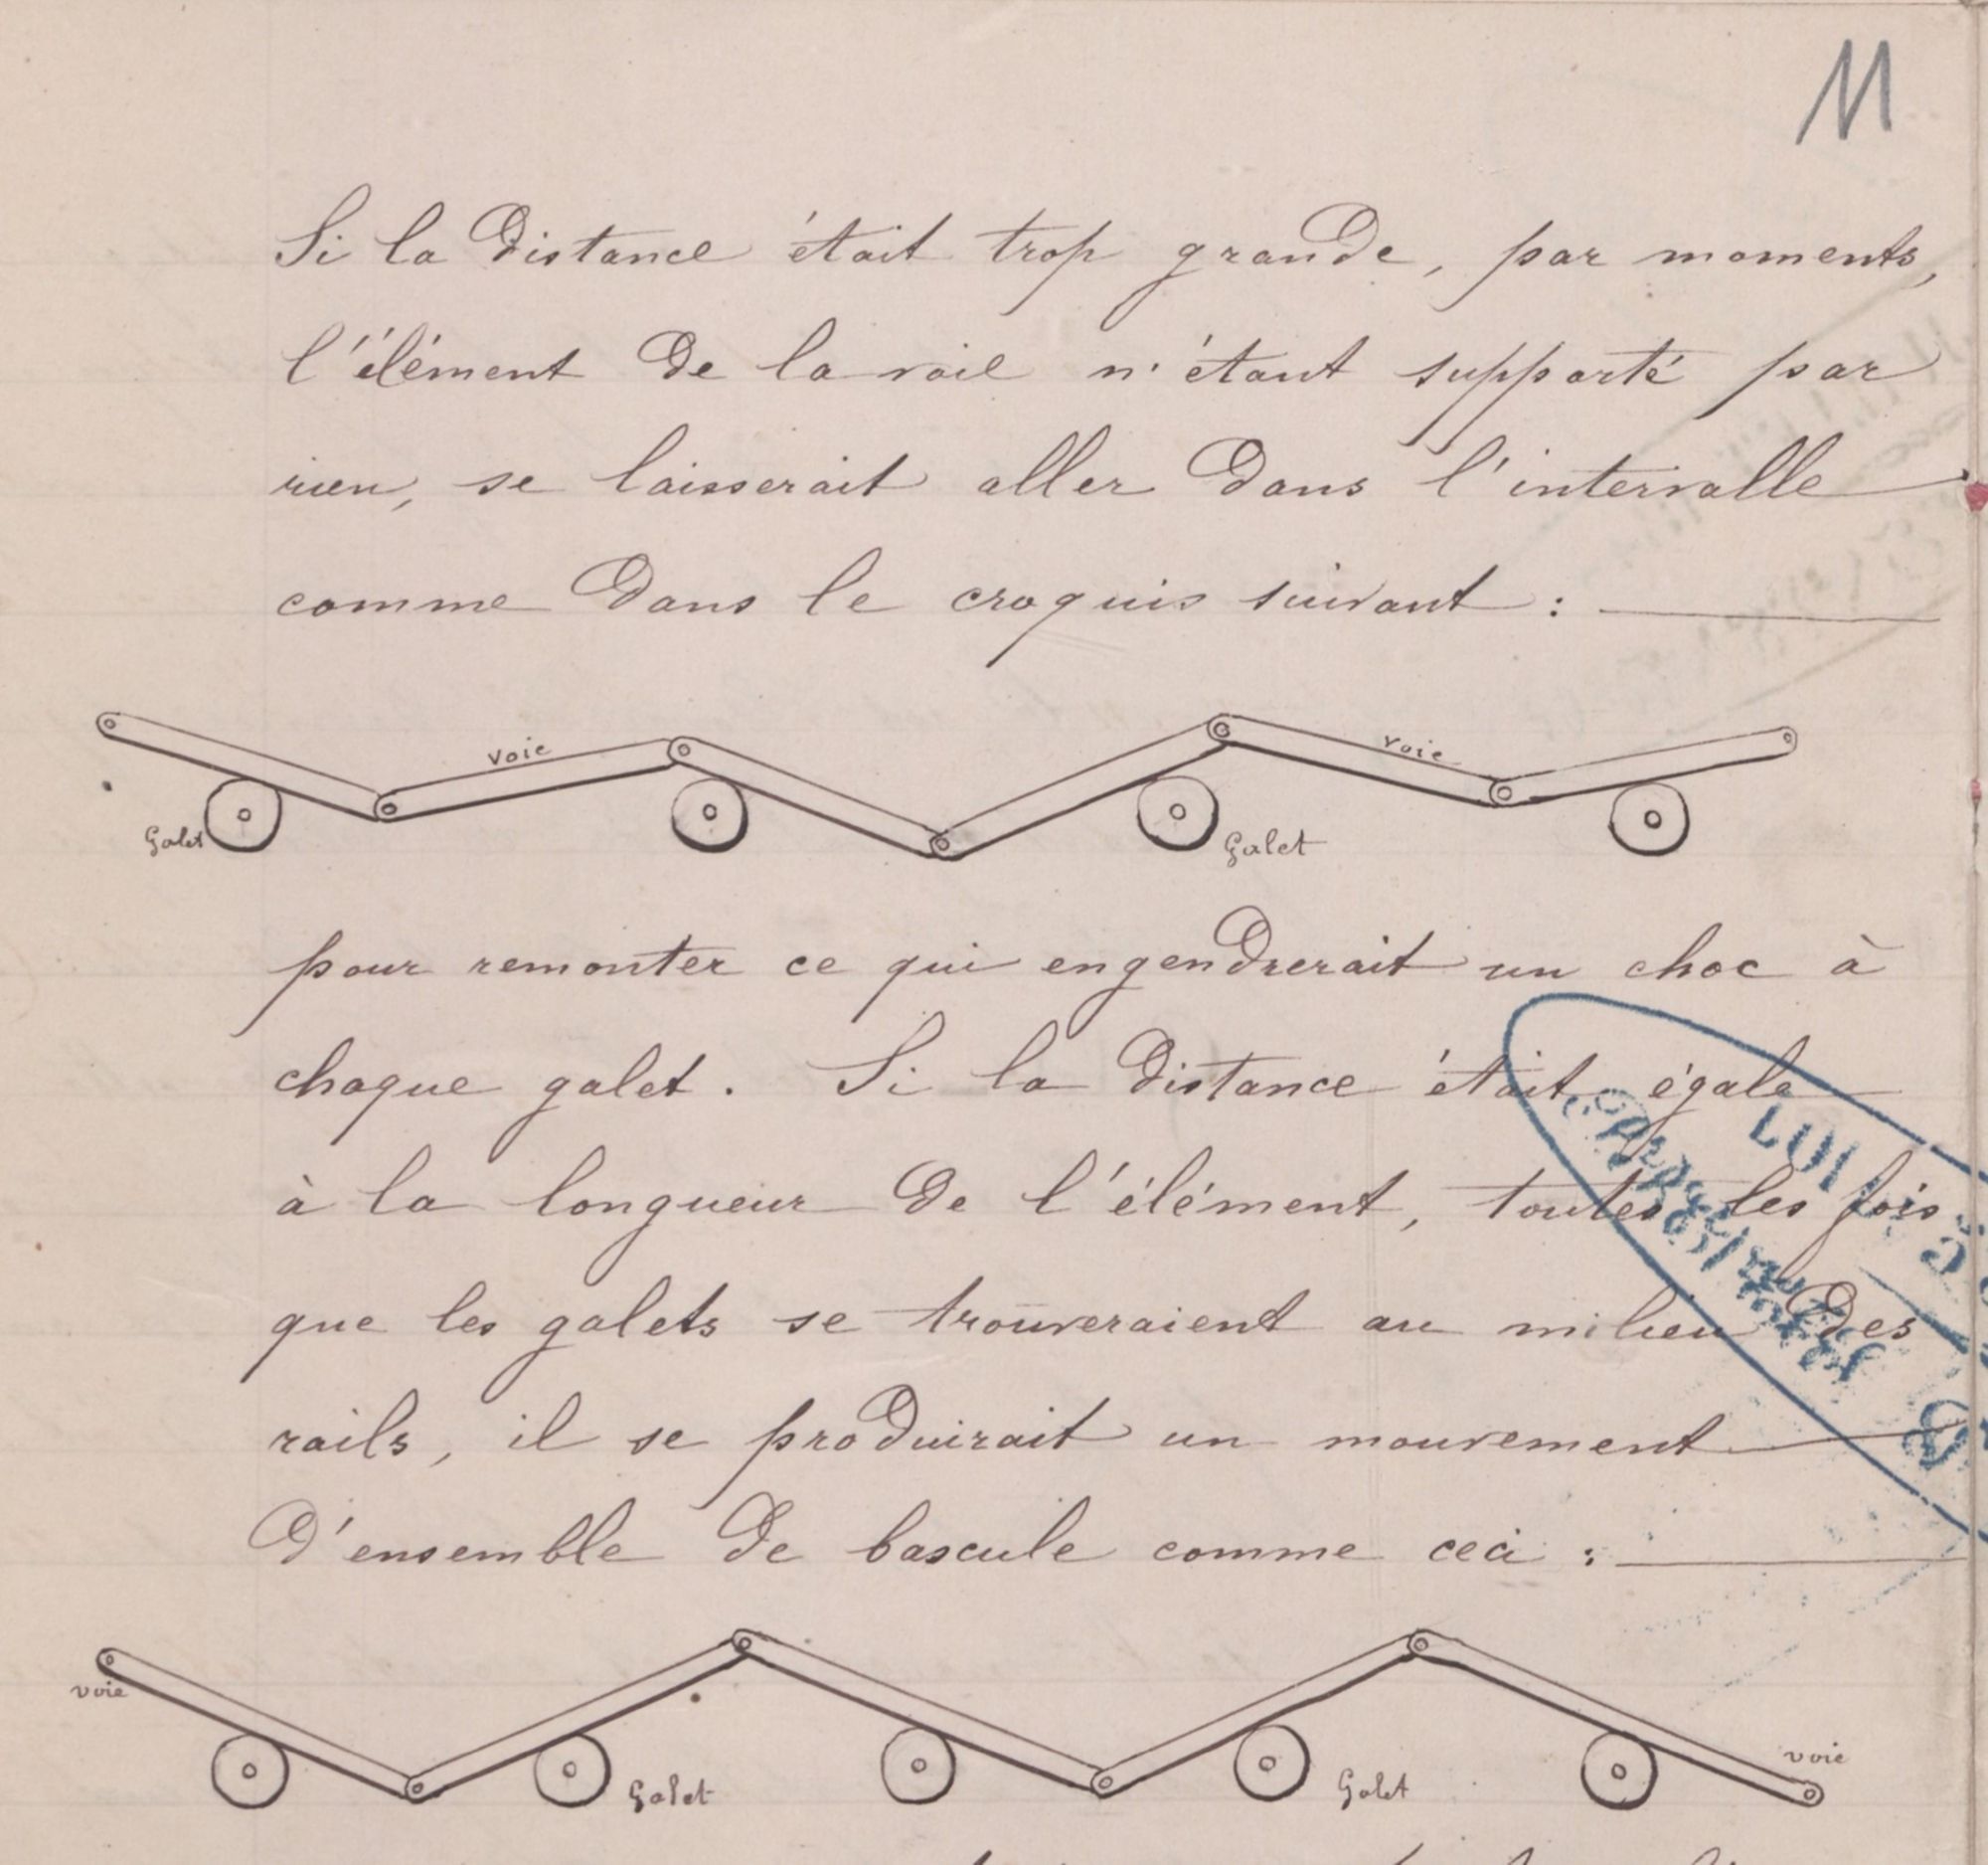 11
Si la distance était trop grande, par moments,
l'élément de la voie n'étant supporté par
rien, se laisserait aller dans l'intervalle
comme dans le croquis suivant :
voie
voie
Galet
Galet
pour remonter ce qui engendrerait un choc à
chaque galet. Si la distance était égale
à la longueur de l'élément, toutes les fois
que les galets se trouveraient au milieu des
rails, il se produirait un mouvement
d'ensemble de bascule comme ceci :
voie
voie
Galet
Galet
LOI